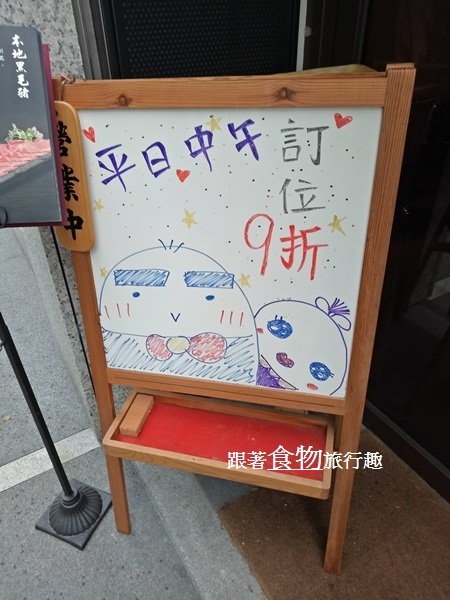 本地黑毛豬
營業中
平日中午
訂位
9折
跟著食物旅行趣